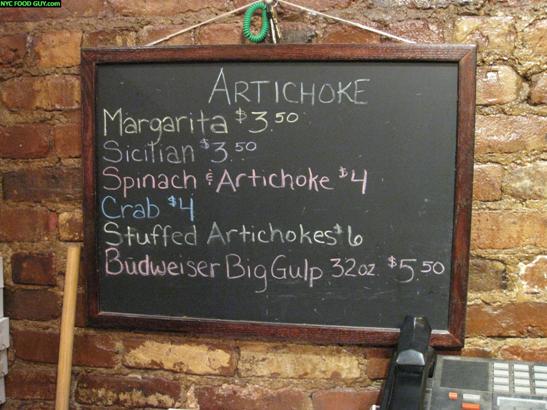 NYC FOOD GUY.com
ARTICHOKE
Margarita $3.50
Sicilian $3.50
Spinach & Artichoke $4
Crab $4
Stuffed Artichokes $6
Budweiser Big Gulp 32oz. $5.50